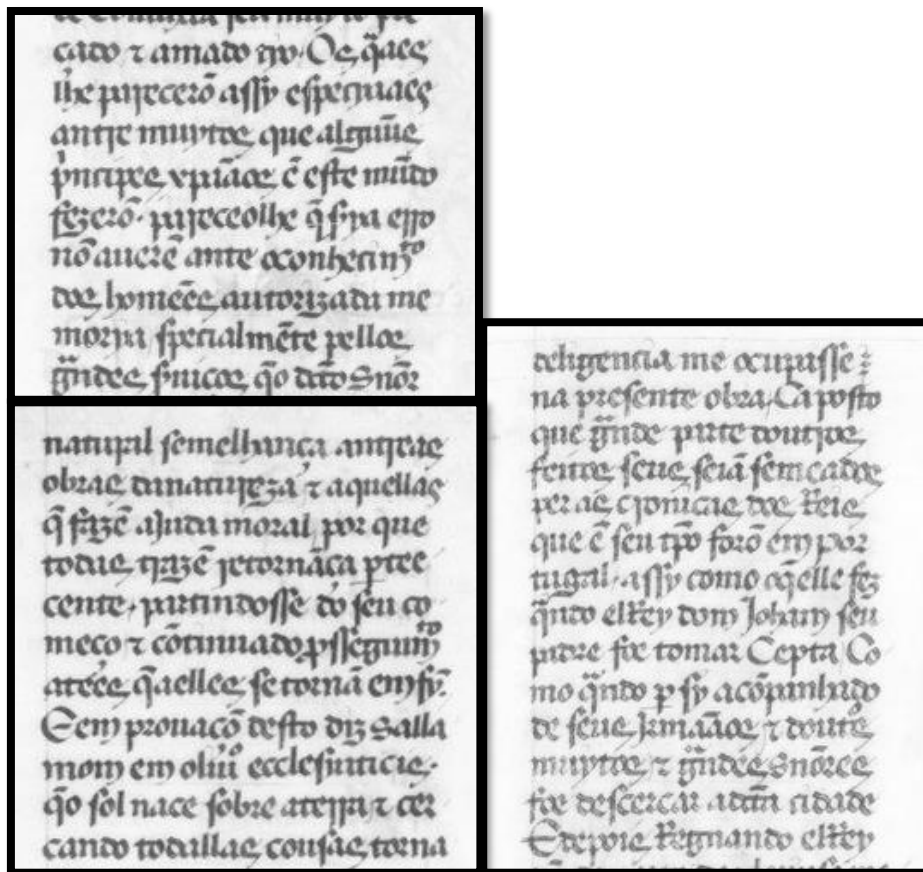 cado ⁊ amado tyo. Os q̃aaes
lhe parecerõ assy especiaaes
antre muytos que alguũs
p̃ncipes xpãaos ẽ este mũdo
fezerõ. pareceolhe q̃ sirya erro
nõ auerẽ ante oconhecimᵗᵒ
dos homeẽs autorizada me
morya specialmẽte pellos
g̃ndes s̃uiços q̃o dito Snõr
natural semelhança antreas
obras danatureza ⁊ aquellas
q̃ fazẽ ajuda moral por que
todas trazẽ retornãça ꝑtee
cente. partindosse do seu co
meço ⁊ cõtinuado ꝓsseguimᵗᵒ
ateeç q̃aelles se tornã em fỹ.
E em prouaçõ desto diz Salla
mom em oliuº ecclesiasticis.
q̃o sol nace sobre aterra ⁊ cer
cando todallas cousas torna
deligencia me ocupasse
na presente obra, Ca posto
que g̃nde parte doutros
feitos seus seiã semeados
per as cronicas dos Reis
que ẽ seu tp̃o forõ em por
tugal. assy como oq̃elle fez
q̃ndo elRey dom Joham seu
padre foe tomar Cepta Co
mo q̃ndo ꝑ sy acõpanhado
de seus Jrmaãos ⁊ doutºs
muytos ⁊ g̃ndes Snõres
foe descercar adita cidade
E depois Regnando elRey